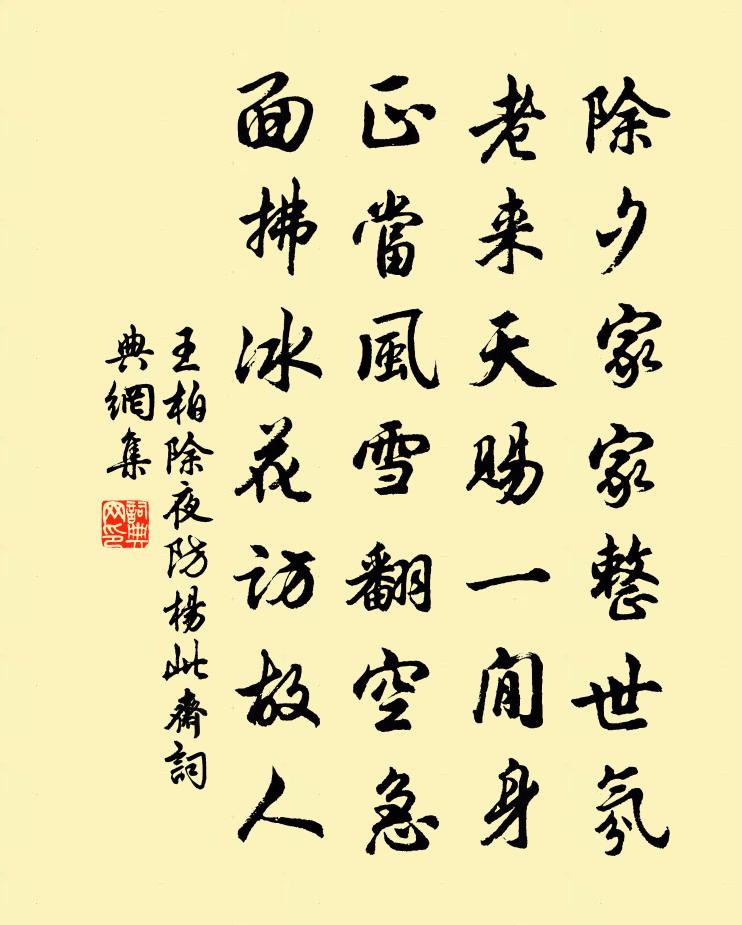 除夕家家整世氛
老来天賜一閒身
正當風雪翻空急
面拂冰花訪故人
王柏除夜防楊此齋詞
典網集
詞典
网印